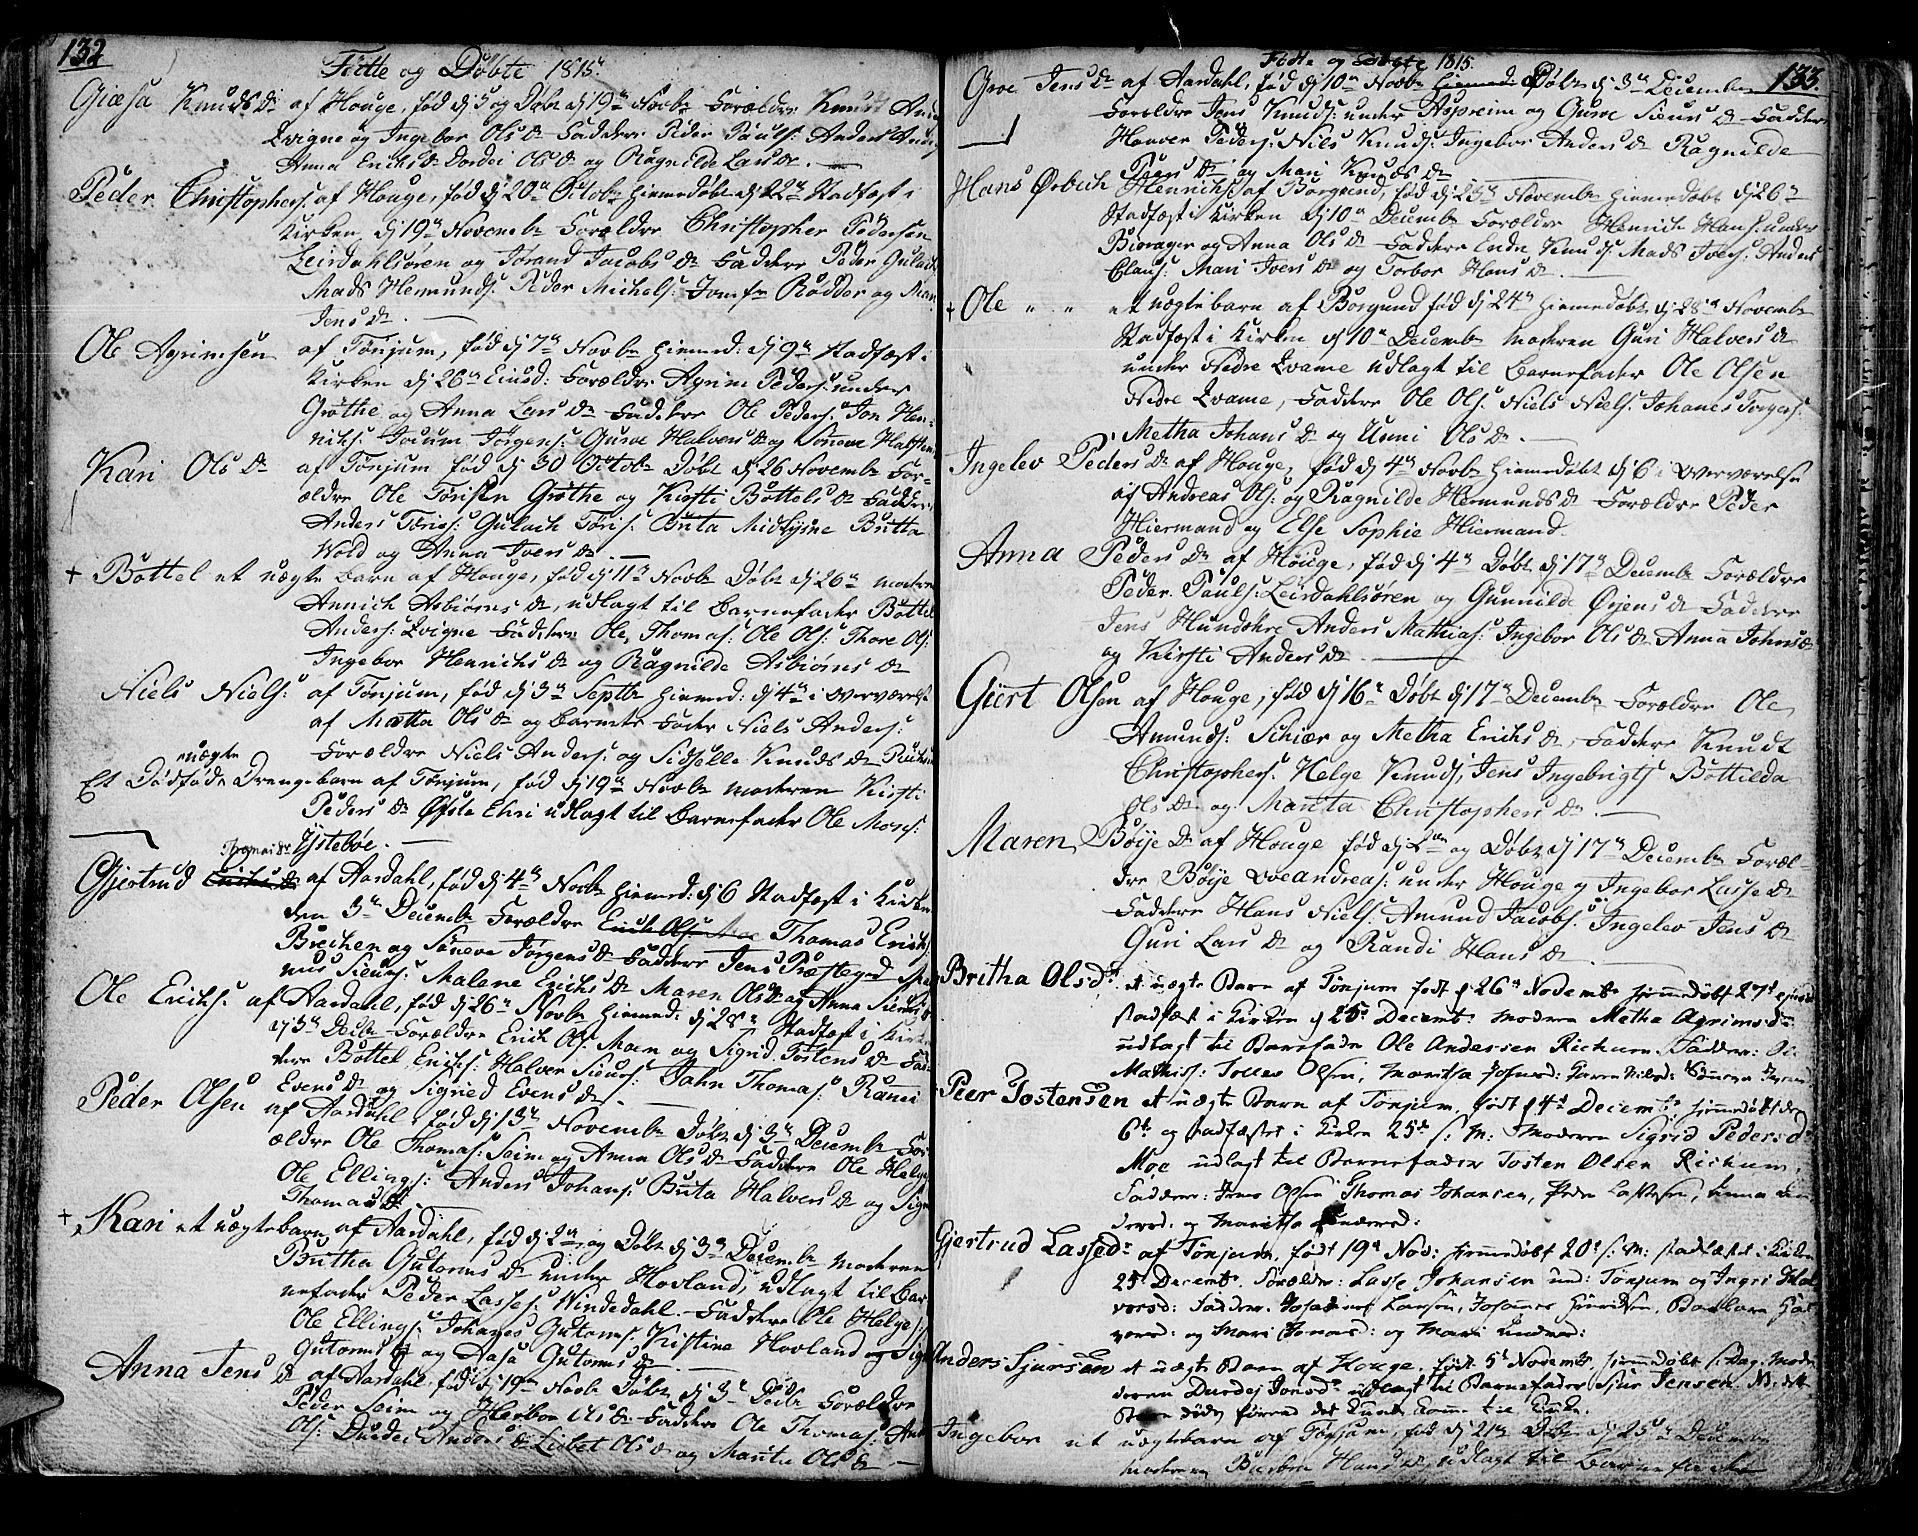 132
Födte og Döbte 1815.
Giæsa Knuds Dr af Houge, fød dj 5 og Døbt dj 19de Novbr Forældre Knud
Qvigne og Ingebor Ols Dr Faddere Peder Pouls: Anders
Anna Erichs Dr Dordei Ols Dr og Ragnilde Lars Dr
Peder Christophers: af Houge, fød dj 20de Octobr hiemedøbt dj 22de Stadfæst i
Kirken dj 19de Novembr Forældre Christopher Pedersen
Leirdahlsören og Jorand Jacobs Dr Faddere Peder Gulach
Mads Hermunds: Peder Michels: Jomfr Rødder og Mari
Jens Dr
Ole Agrimsen af Tönjum, fød dj 7de Novbr hiemed: dj 9de Stadfæst i
Kirken dj 26de Eiusd: Forældre Agrim Peders: under
Grøthe og Anna Lars Dr Faddere Ole Peders: Jon Hen-
richs: Jocum Jörgens: Gurve Halvers Dr og
Kari Ols Dr af Tönjum fød dj 30 Octobr Døbt dj 26 Novembr For-
ældre Ole Torisen Grøthe og Kirsti Bottels Dr Faddere
Anders Tøris: Gulach Tøris: Brita Midlysne Britta
Wold og Anna Ivers Dr
+ Bottel et uægte barn af Houge, fød dj 11de Novbr Døbt dj 26de moderen
Annich Asbiörns Dr, udlagt til Barnefader Bottel
Anders: Qvigne Faddere Ole Thomas: Ole Ols: Thore Ols:
Ingebor Henrichs Dr og Ragnilde Asbiörns Dr
Niels Niels: af Tönjum, fød dj 3de Septbr hiemed: dj 4de i Overværelse
af Mætta Ols Dr og Barnets Fader Niels Anders:
Forældre Niels Anders: og Sidselle Knuds Dr
uægte
Et Dödfødt Drengebarn af Tönjum, fød dj 19de Novbr moderen Kirsti
Peders Dr Øfste Ehri udlagt til Barnefader Ole Mons:
Ystebøe.
Thomæ Dr
Gjertrud Erichs Dr af Aardahl, fød dj 4de Novbr hiemed: dj 6 Stadfæst i Kirken
den 3de Decembr Forældre Erich Ols: Thomas Erichs:
Brechen og Söneva Jörgens Dr Faddere Jens Præstegrd
Siurs: Malene Erichs Dr Maren Ols Dr og Anna Siurs Dr
Ole Erichs: af Aardahl, fød dj 26de Novbr hiemed: dj 28de Stadfæst i Kirken
dj 3de Decbr Forældre Erich Ols: Moen og Sigrid Tostens Dr Fad-
dere Bottel Erichs: Halver Siurs: John Thomas: Ranni
Evens Dr og Sigried Evens Dr
Peder Olsen af Aardahl, fød dj 13de Novembr Döbt dj 3de Decembr For-
ældre Ole Thomas: Seim og Anna Ols Dr Faddere Ole Helge
Ole Ellings: Anders Johans: Brita Halvers Dr og
Thomas Dr
+ Kari et uægte barn af Aardahl, fød dj 2de og Døbt dj 3de Decembr moderen
Britha Gutorms Dr under Hovland, udlagt til Bar-
nefader Peder Lasses: Windedahl. Faddere Ole Helges:
Ole Ellings: Johanes Gutorms: Kristine Hovland og
Gutorms Dr og Aasa Gutorms Dr
Anna Jens Dr af Aardahl, fød dj 19de Novbr Døbt dj 3de Decbr Forældre
Peder Seim og Herbor Ols Dr Faddere Ole Thomas:
Ols: Durdei Anders Dr Lisbet Ols Dr og Marita Ols Dr
Födte og Döbte 1815.
133.
Groe Jens Dr af Aardahl, fød dj 10de Novbr hiemed: Døbt dj 3de Decembr
Forældre Jens Knuds: under Aspreim og Gurve Siurs Dr Faddere
Haaver Peders: Nils Knuds: Ingebor Anders Dr Ragnilde
Peders Dr og Mari Knuds Dr
Hans Ørbech Henrichs: af Borgund, fød dj 23de November hiemedøbt dj 26de
Stadfæst i Kirken dj 10de Decembr Forældre Henrich Hans: under
Biørager og Anna Ols Dr Faddere Endre Knuds: Mads Ivers: Anders
Claus: Mari Ivers Dr og Torbor Hans Dr
+ Ole " " et uægte barn af Borgund fød dj 24de hiemedøbt dj 28de Novembr
Stadfæst i Kirken dj 10de Decembr moderen Guri Halvers Dr
under Nedre Qvame udlagt til Barnefader Ole Olsen
Nedre Qvame, Faddere Ole Ols: Niels Niels: Johanes Torgers:
Metha Johans Dr og Unni Ols Dr
Ingelev Peders Dr af Houge, fød dj 4de Novbr hiemedøbt dj 6 i Overværelse
af Andreas Ols: og Ragnilde Hermunds Dr Forældre Peder
Hiermand og Else Sophie Hiermand.
Anna Peders Dr af Houge, fød dj 4de Døbt dj 17de Decembr Forældre
Peder Pauls: Leirdahlsören og Gunnilde Örjens Dr Faddere
Jens Hundshre Anders Mathias: Ingebor Ols Dr Anna Johns Dr
og Kirsti Anders Dr
Giert Olsen af Houge, fød dj 16de Døbt dj 17de Decembr Forældre Ole
Amunds: Schiær og Metha Erichs Dr, Faddere Knudt
Christophers: Helge Knuds: Jens Ingebrigts: Bottilda
Ols Dr og Marita Christophers Dr
Maren Böije Dr af Houge fød dj 2de og Døbt dj 17de Decembr Foræl-
dre Böije Oveandreas: under Houge og Ingebor Lasse Dr
Faddere Hans Niels: Amund Jacobs: Ingelev Jens Dr
Guri Lars Dr og Randi Hans Dr
Britha Olsdr et uægte Barn af Tönjum født d 26de Novembr hjemmedøbt 27d
stadfæst i Kirken d 25de Decembr: Moderen Metha Agrimsdr:
udlagt til Barnefader Ole Andersen Rickum. Faddere: Ole
Mathiss: Tolles Olsen, Maritha Johnsd: Karen Nilsd:
Peer Tostensen et uægte Barn af Tönjum, født d 4de Decembr hjemmedøbt den
6te og stadfæstet i Kirken 25de s: M: Moderen Sigrid Pedersdr
Moe udlagt til Barnefader Tosten Olsen Rickum.
Faddere: Jens Olsen Thomas Johansen, Peder Lassesen, Anna An-
dersd: og Maritha
Gjertrud Lassedr af Tönjum, født 19de Nov: hjemmedøbt 20de s: M: stadfæstet i Kirken
25de Decembr. Forældre: Lasse Johansen und: Tönjum og Ingri Hal
versd: Faddere: Johannes Larsen, Johannes Henriksen, Barbara Hal
versd: og Mari Jonasd: og Mari Endresd:
Anders Sjursen et uægte Barn af Houge, født 5te Novembr, hjemmedøbt s: Dag. Mo-
deren Durdej Jonsdr udlagt til Barnefader Sjur Jensen. NB: dette
Barn døde førend det kunde komme til Kirke.
Ingebor et uægte barn af Tönjum, fød dj 21de Døbt dj 25de Decembr
moderen Barbra Hans Dr, udlagt til Barnefader